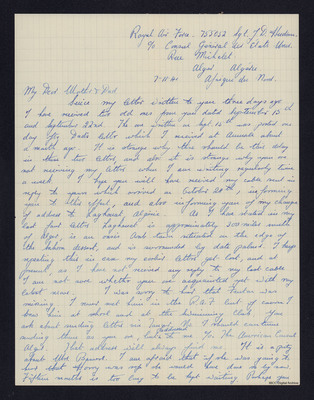 Royal Air Force. 755052 Sgt. J.D. Hudson.
C/o Consul General des Etats Unis
Rue Michelet
Alger, Algerie
7-11-41 Afrique du Nord.
My Dear Mother & Dad
Since my letter written to you three days ago
I have received two old ones from you dated September 13th
and September 22nd. The one written on Sept 16th was posted on
day by
letter which I received at Aumale about
a month ago. It is strange why there should be this delay
in these two letters, and also it is strange why you are
not receiving my letters when I am writing regularly twice
a week. I hope you will have received my cable sent in
reply to yours which arrived on October 20th, informing
you to this effect, and also informing you of my change
of address to Laghouat, Algeria. As I have stated in my
last few letters Laghouat is approximately 300 miles south
of Algiers, is an oasis town situated on the edge of
the Sahara desert, and is surrounded by date palms. I keep
repeating this in case my earlier letters get lost, and at
present, as I have not received any reply to my last cable
I am not sure whether you are acquainted yet with my
latest news. I was sorry to hear that
was
missing. I never met him in the R.A.F. but of course I
knew him at school and at the Swimming Club. You
ask about sending letters via Lisbon. No I should continue
sending them as you are, c/o The American Consul
Algiers. That address will always find me. It is a pity
about
. I am afraid that if she was going to
have been
she would have done so by now.
Fifteen months is too long to be kept waiting. Perhaps you